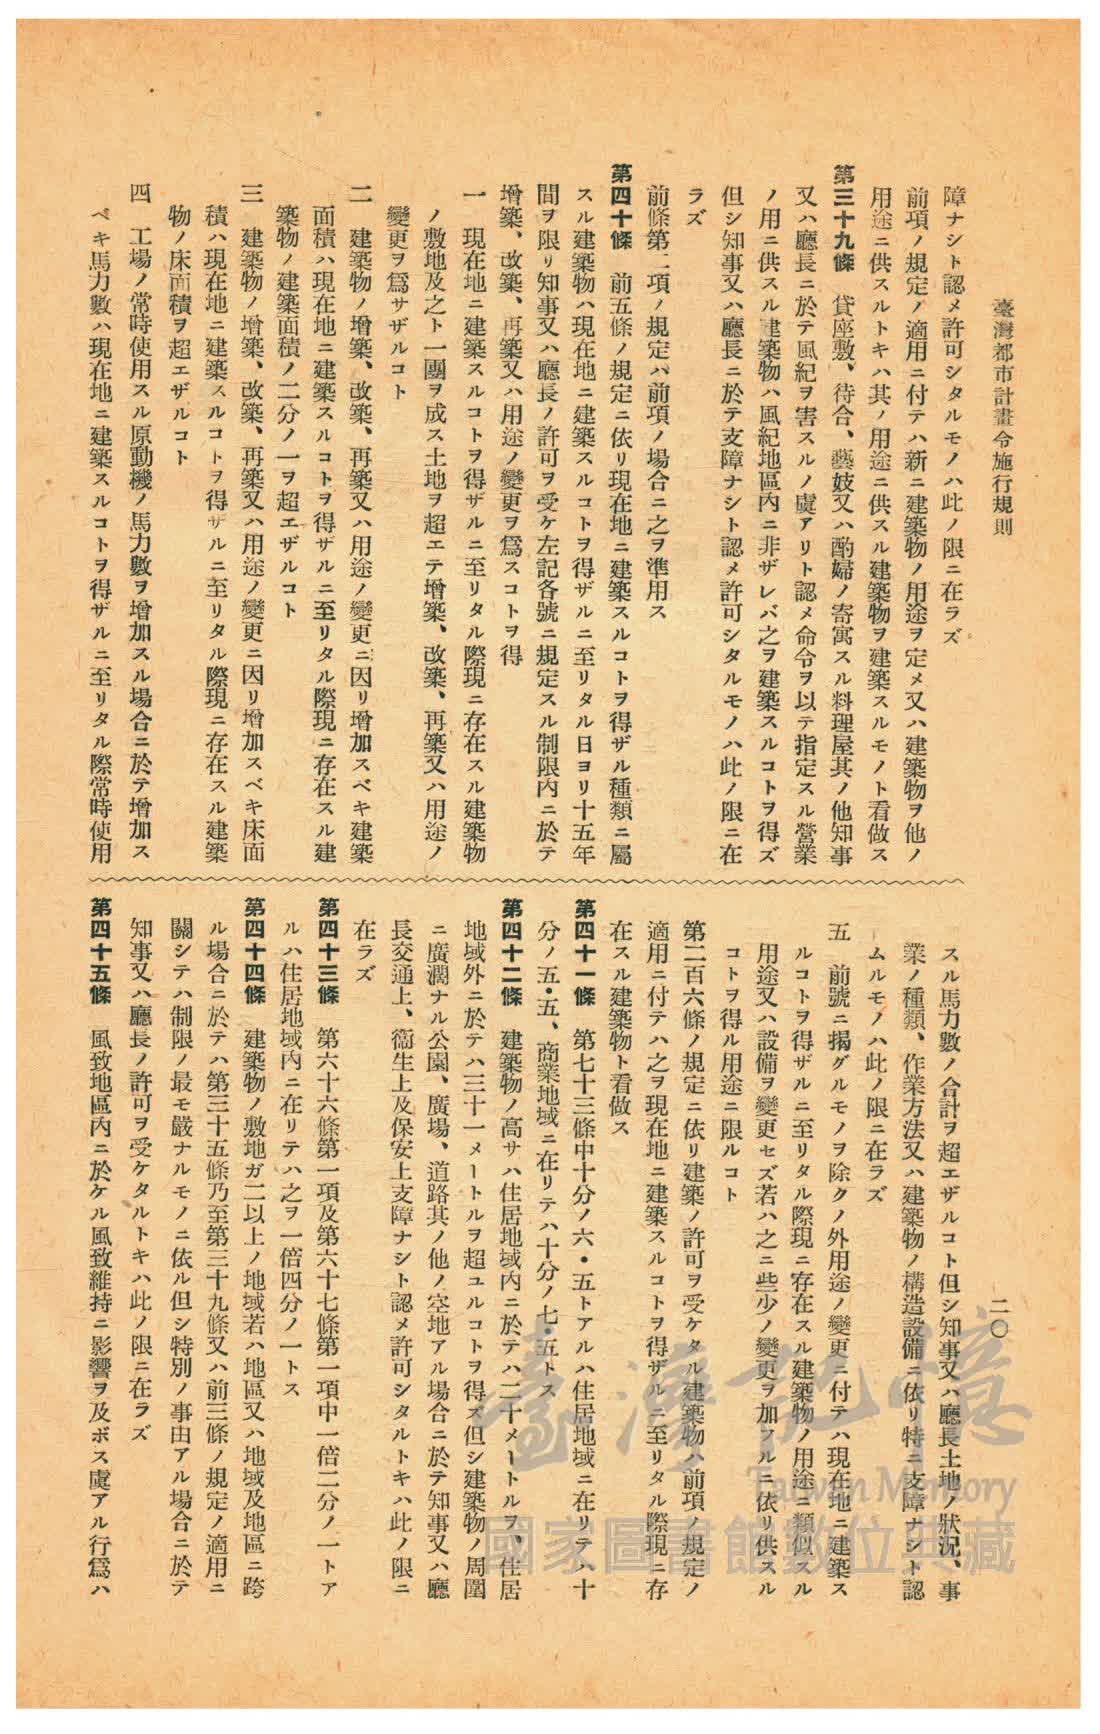 臺灣都市計畫令施行規則
二〇
障ナシト認メ許可シタルモノハ此ノ限ニ在ラズ
前項ノ規定ノ適用ニ付テハ新ニ建築物ノ用途ヲ定メ又ハ建築物ヲ他ノ
用途ニ供スルトキハ其ノ用途ニ供スル建築物ヲ建築スルモノト看做ス
第三十九條　貸座敷、待合、藝妓又ハ酌婦ノ寄寓スル料理屋其ノ他知事
又ハ廳長ニ於テ風紀ヲ害スルノ虞アリト認メ命令ヲ以テ指定スル營業
ノ用ニ供スル建築物ハ風紀地區內ニ非ザレバ之ヲ建築スルコトヲ得ズ
但シ知事又ハ廳長ニ於テ支障ナシト認メ許可シタルモノハ此ノ限ニ在
ラズ
前條第二項ノ規定ハ前項ノ場合ニ之ヲ準用ス
第四十條　前五條ノ規定ニ依リ現在地ニ建築スルコトヲ得ザル種類ニ屬
スル建築物ハ現在地ニ建築スルコトヲ得ザルニ至リタル日ヨリ十五年
間ヲ限リ知事又ハ廳長ノ許可ヲ受ケ左記各號ニ規定スル制限內ニ於テ
增築、改築、再築又ハ用途ノ變更ヲ爲スコトヲ得
一　現在地ニ建築スルコトヲ得ザルニ至リタル際現ニ存在スル建築物
ノ敷地及之ト一團ヲ成ス土地ヲ超エテ增築、改築、再築又ハ用途ノ
變更ヲ爲サザルコト
二　建築物ノ增築、改築、再築又ハ用途ノ變更ニ因リ增加スベキ建築
面積ハ現在地ニ建築スルコトヲ得ザルニ至リタル際現ニ存在スル建
築物ノ建築面積ノ二分ノ一ヲ超エザルコト
三　建築物ノ增築、改築、再築又ハ用途ノ變更ニ因リ增加スベキ床面
積ハ現在地ニ建築スルコトヲ得ザルニ至リタル際現ニ存在スル建築
物ノ床面積ヲ超エザルコト
四　工場ノ常時使用スル原動機ノ馬力數ヲ增加スル場合ニ於テ增加ス
ベキ馬力數ハ現在地ニ建築スルコトヲ得ザルニ至リタル際常時使用
スル馬力數ノ合計ヲ超エザルコト但シ知事又ハ廳長土地ノ狀況、事
業ノ種類、作業方法又ハ建築物ノ構造設備ニ依リ特ニ支障ナシト認
ムルモノハ此ノ限ニ在ラズ
五　前號ニ揭グルモノヲ除クノ外用途ノ變更ニ付テハ現在地ニ建築ス
ルコトヲ得ザルニ至リタル際現ニ存在スル建築物ノ用途ニ類似スル
用途又ハ設備ヲ變更セズ若ハ之ニ些少ノ變更ヲ加フルニ依リ供スル
コトヲ得ル用途ニ限ルコト
第二百六條ノ規定ニ依リ建築ノ許可ヲ受ケタル建築物ハ前項ノ規定ノ
適用ニ付テハ之ヲ現在地ニ建築スルコトヲ得ザルニ至リタル際現ニ存
在スル建築物ト看做ス
第四十一條　第七十三條中十分ノ六・五トアルハ住居地域ニ在リテハ十
分ノ五・五、商業地域ニ在リテハ十分ノ七・五トス
第四十二條　建築物ノ高サハ住居地域內ニ於テハ二十メートルヲ、住居
地域外ニ於テハ三十一メートルヲ超ユルコトヲ得ズ但シ建築物ノ周圍
ニ廣濶ナル公園、廣場、道路其ノ他ノ空地アル場合ニ於テ知事又ハ廳
長交通上、衞生上及保安上支障ナシト認メ許可シタルトキハ此ノ限ニ
在ラズ
第四十三條　第六十六條第一項及第六十七條第一項中一倍二分ノ一トア
ルハ住居地域內ニ在リテハ之ヲ一倍四分ノ一トス
第四十四條　建築物ノ敷地ガ二以上ノ地域若ハ地區又ハ地域及地區ニ跨
ル場合ニ於テハ第三十五條乃至第三十九條又ハ前三條ノ規定ノ適用ニ
關シテハ制限ノ最モ嚴ナルモノニ依ル但シ特別ノ事由アル場合ニ於テ
知事又ハ廳長ノ許可ヲ受ケタルトキハ此ノ限ニ在ラズ
第四十五條　風致地區內ニ於ケル風致維持ニ影響ヲ及ボス虞アル行爲ハ
臺灣記憶
Taiwan Memory
國家圖書館數位典藏